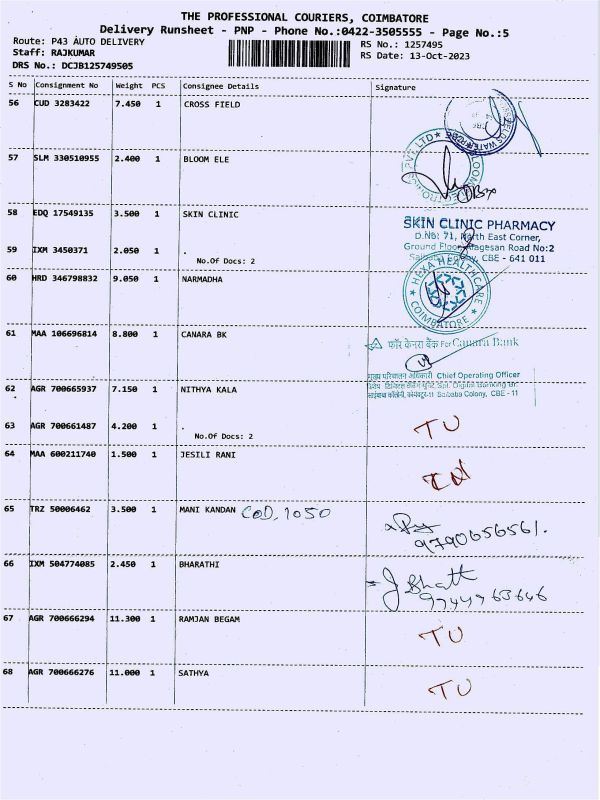 THE PROFESSIONAL COURIERS, COIMBATORE
Delivery Runsheet - PNP - Phone No.:0422-3505555 - Page No.:5
Route: P43 AUTO DELIVERY
RS No.: 1257495
Staff: RAJKUMAR
RS Date: 13-Oct-2023
DRS No.: DCJB125749505
S No Consignment No Weight PCS Consignee Details Signature
56 CUD 3283422 7.450 1 CROSS FIELD
57 SLM 330510955 2.400 1 BLOOM ELE
PVT. LTD
58 EDQ 17549135 3.500 1 SKIN CLINIC
SKIN CLINIC PHARMACY
D.No: 71, North East Corner,
Ground Floor, Alagesan Road No:2
CBE - 641 011
59 IXM 3450371 2.050 1 .
No.Of Docs: 2
60 HRD 346798832 9.050 1 NARMADHA
HEXA HEALTHCARE
COIMBATORE
61 MAA 106696814 8.800 1 CANARA BK
फॉर केनरा बैंक For Canara Bank
मुख्य परिचालन अधिकारी Chief Operating Officer
Saibaba Colony, CBE - 11
62 AGR 700665937 7.150 1 NITHYA KALA
63 AGR 700661487 4.200 1 .
No.Of Docs: 2
TU
64 MAA 600211740 1.500 1 JESILI RANI
65 TRZ 50006462 3.500 1 MANI KANDAN COD. 1050
9790656561.
66 IXM 504774085 2.450 1 BHARATHI
J Bhatt
67 AGR 700666294 11.300 1 RAMJAN BEGAM
TU
68 AGR 700666276 11.000 1 SATHYA
TU